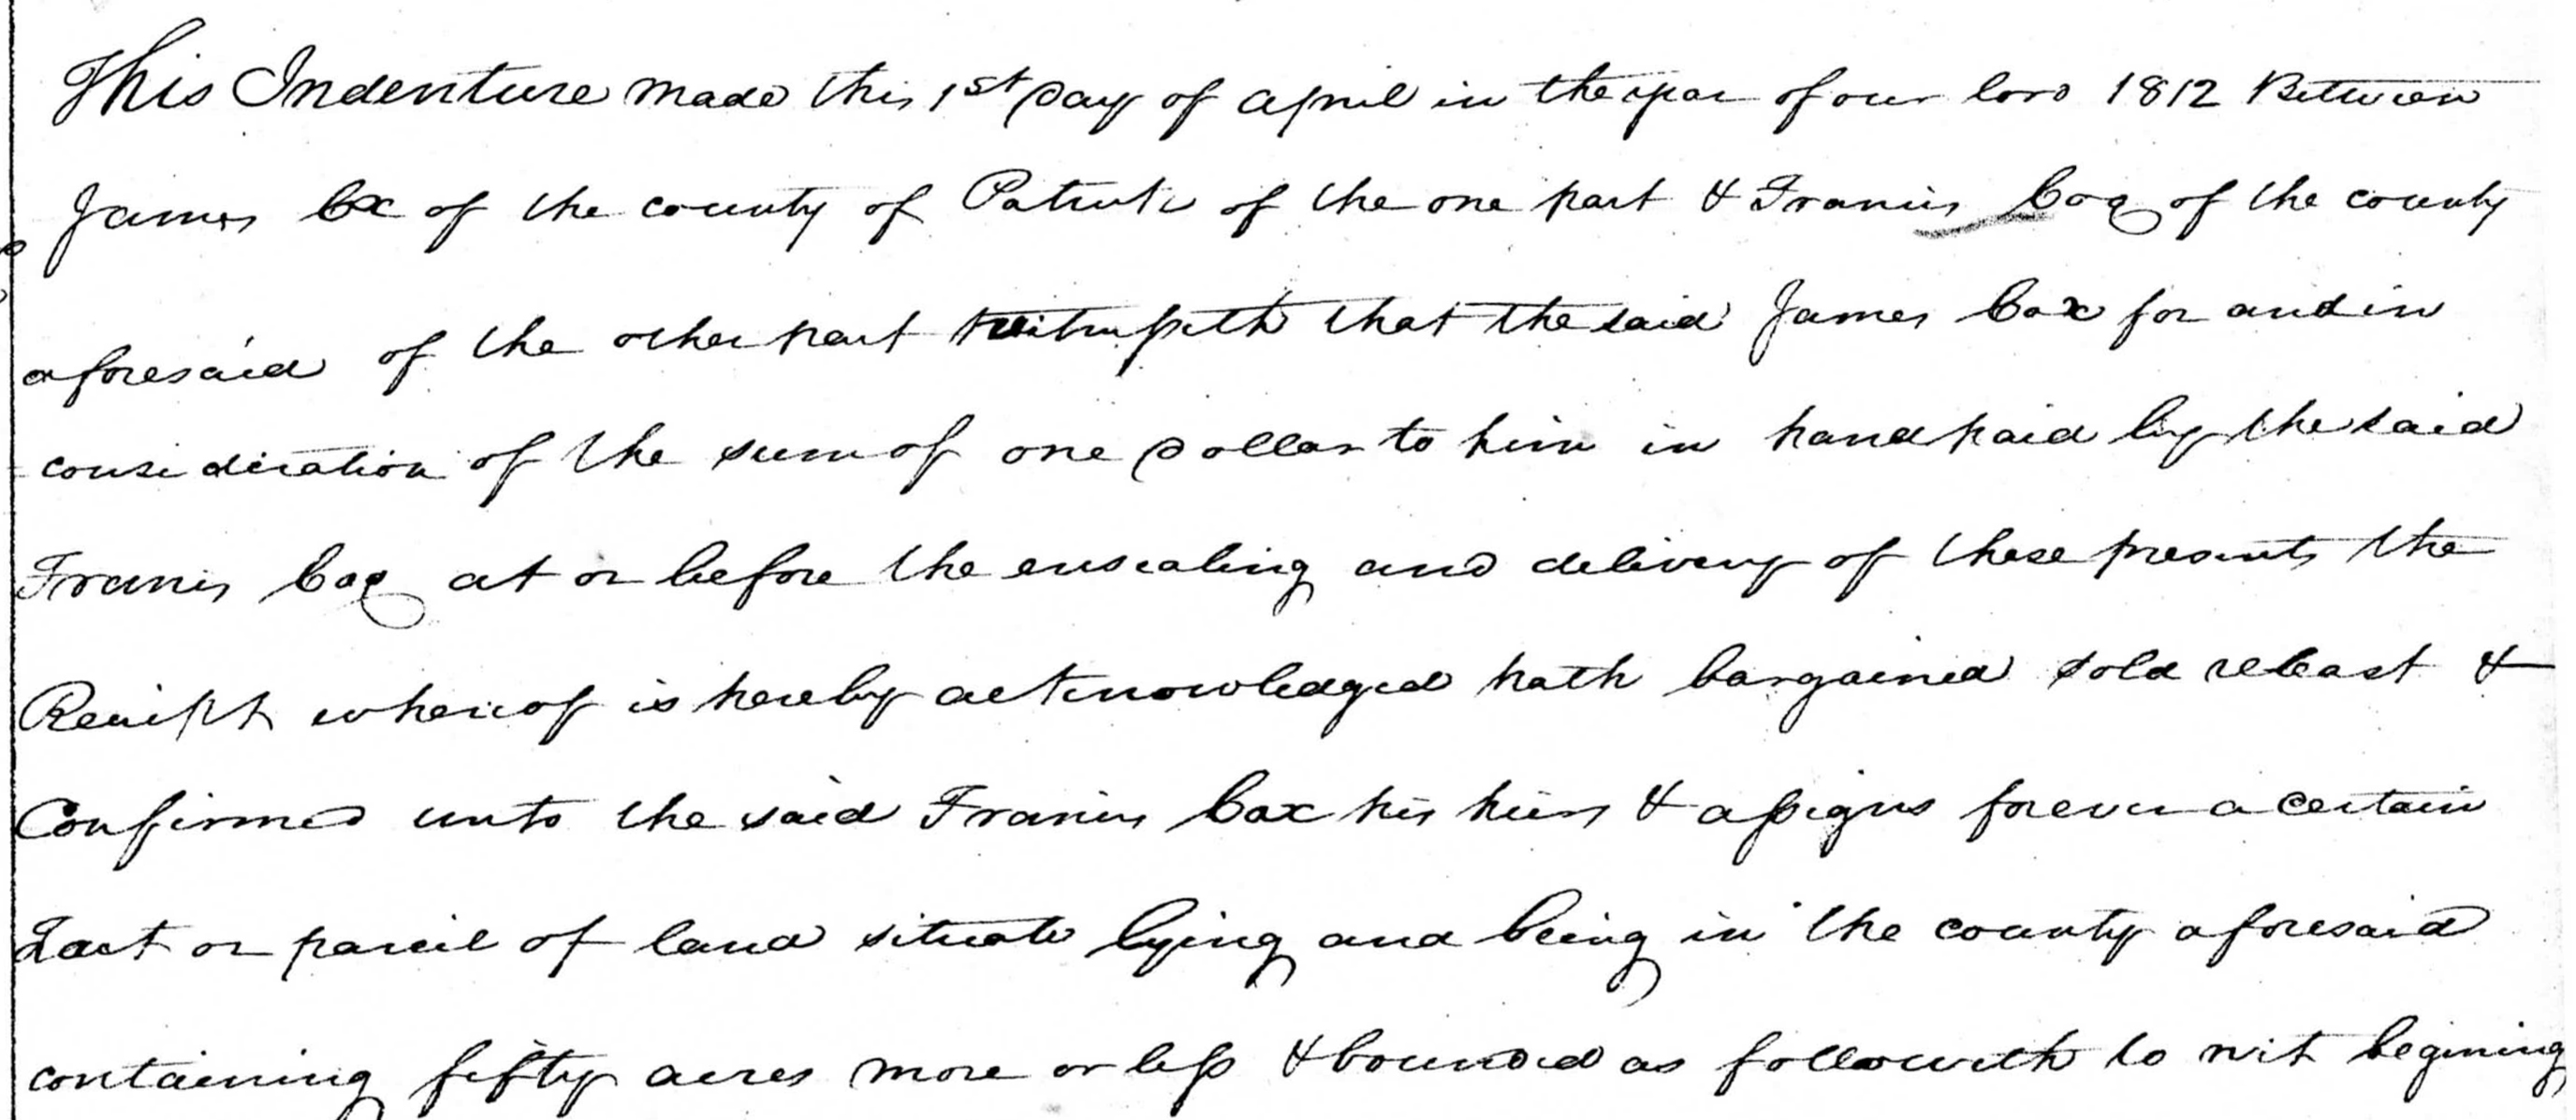 This Indenture made this 1st Day of April in the year of our lord 1812 Between
James Cox of the county of Patrick of the one part & Francis Cox of the county
aforesaid of the other part witnesseth that the said James Cox for and in
consideration of the sum of one Dollar to him in hand paid by the said
Francis Cox at or before the ensealing and delivery of these presents the
Receipt whereof is hereby acknowledged hath bargained sold releast &
Confirmed unto the said Francis Cox his heirs & assigns forever a certain
Tract or parcel of land situate lying and being in the county aforesaid
containing fifty acres more or less & bounded as followeth to wit begining